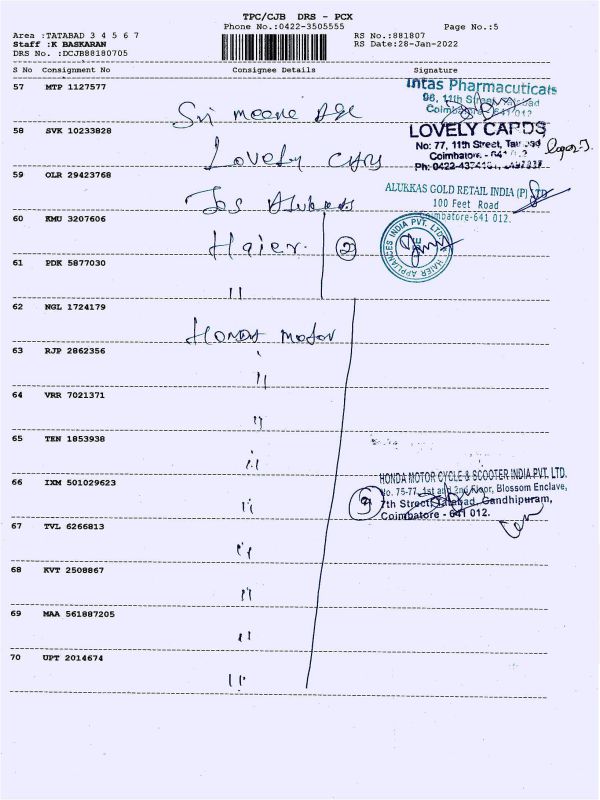 TPC/CJB DRS - PCX
Phone No.:0422-3505555
Page No.:5
Area :TATABAD 3 4 5 6 7
Staff :K BASKARAN
DRS No. :DCJB88180705
RS No.:881807
RS Date:28-Jan-2022
S No Consignment No Consignee Details Signature
57 MTP 1127577
Intas Pharmaceuticals
96, 11th Street, Tatabad
Coimbatore-641 012
58 SVK 10233828
LOVELY CARDS
No: 77, 11th Street, Tatabad
Coimbatore. - 641 012
Ph: 0422-4374
Lovely Cards
59 OLR 29423768
ALUKKAS GOLD RETAIL INDIA (P) LTD
100 Feet Road
Coimbatore-641 012.
Jos Alukkas
60 KMU 3207606
Haier. 2
HAIER APPLIANCES INDIA PVT. LTD.
61 PDK 5877030
"
62 NGL 1724179
Honda Motor
63 RJP 2862356
"
64 VRR 7021371
"
65 TEN 1853938
"
66 IXM 501029623
"
HONDA MOTOR CYCLE & SCOOTER INDIA PVT. LTD.
No. 75-77, 1st and 2nd Floor, Blossom Enclave,
7th Street, Tatabad, Gandhipuram,
Coimbatore - 641 012.
9
67 TVL 6266813
"
68 KVT 2508867
"
69 MAA 561887205
"
70 UPT 2014674
"